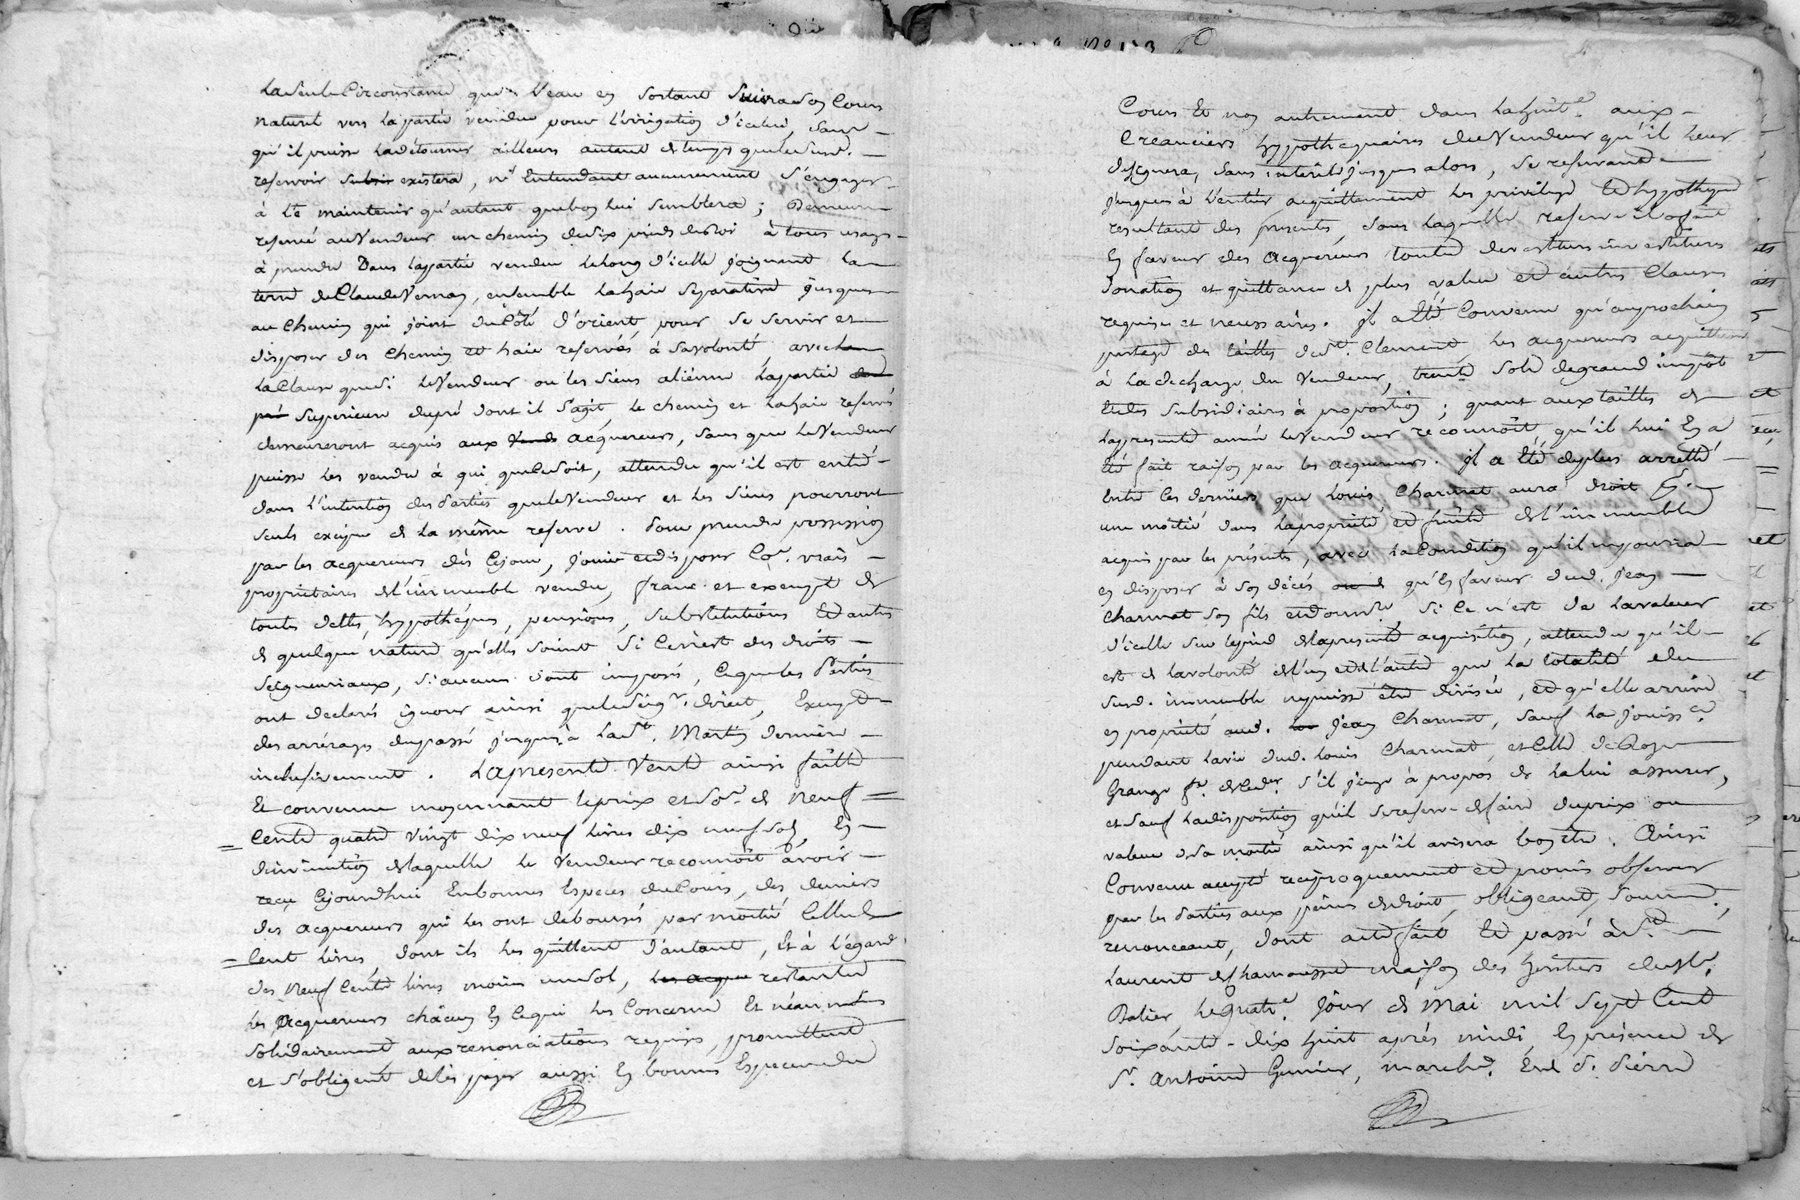 la seule Circonstance que l'eau en sortant suivra son Cours
naturel vers la partie vendue pour l'irrigation d'icelui, sans
qu'il puisse la detourner ailleurs autant de temps que ledit
reservoir existera, n'Entendant aucunement s'engager
à le maintenir qu'autant que bon lui semblera ; Demeure
reservé au Vendeur un chemin de six pieds de Roi à tous usages
à prendre Dans la partie vendue le long d'icelle joignant la
terre de Claude Vernay, ensemble la haie separative jusques
au Chemin qui joint du Côté d'orient, pour se servir et
disposer des Chemin et haie reservés à sa volonté, avec la
la Clause que si le Vendeur ou les siens aliéne la partie
pré superieure du pré dont il s'agit, le chemin et la haie reservés
demeureront acquis aux acquereurs, sans que le Vendeur
puisse les vendre à qui que ce soit, attendu qu'il est entré
dans l'intention des Parties que le Vendeur et les siens pourront
seuls exciper de la même reserve. Pour prendre possession
par les acquereurs dès Cejour, jouir et disposer Coe. vrais
proprietaires de l'immeuble vendu, franc et exempt de
toutes dettes, hypothéques, pensions, substitutions Et autres
de quelque nature qu'elles soient Si Ce n'est des droits
Seigneuriaux, si aucuns sont imposés, Ce que les Parties
ont declaré ignorer ainsi que le seigr. direct, Exempt
des arrérages du passé jusqu'à la st. Martin derniere
inclusivement. La presente Vente ainsi faitte
Et convenue moyennant le prix et soe. de Neuf
Cents quatre vingt dix neuf livres dix neuf sols, En
diminution de laquelle le Vendeur reconnoit avoir
reçu Cejourdhui En bonnes Espèces du Cours, des deniers
des acquereurs qui les ont deboursés par moitié Celle de
Cent livres dont ils les quittent d'autant, Et à l'égard
des Neuf Cents livres moins un sol, restantes
les Acquereurs châcun En Ce qui les Concerne Et néanmoins
solidairement aux renonciations requises, promettent
et s'obligent de les payer aussi En bonnes Especes du
Cours Et non autrement dans aux
Creanciers hypothequaires du Vendeur qu'il leur
désignera, sans interêt jusques alors, se reservant
jusques à l'entier acquittement les privilege Et hypotheque
resultant des presentes, sous laquelle reserve il a fait
En faveur des Acquereurs toutes devestitures investitures
donation et quittance de plus value Et autres Clauses
requises et necessaires. Il a Eté Convenu qu'au prochain
partage des tailles de st. Clement les acquereurs acquitteront
à la decharge du Vendeur, trente sols de grand impôt
Et les subsidiaires à proportion ; quant aux tailles de
la presente année le Vendeur reconnoit qu'il lui En a
Eté fait raison par les acquereurs. Il a Eté de plus arretté
Entre Ces derniers que Louis Charmat aura droit
une moitié dans la proprieté et fruits de l'immeuble
acquis par les présentes, avec la Condition qu'il ne pourra
en disposer à son décés qu'En faveur dud. Jean
Charmat son fils, Si Ce n'est de la valeur
d'icelle sur le pied de la presente acquisition, attendu qu'il
est de la volonté de l'un et de l'autre que la totalité du
susd. immeuble ne puisse être divisée, et qu'elle arrive
en proprieté aud. Jean Charmat, sauf la jouissce.
pendant la vie dud. Louis Charmat, et Celle de
Grange fe. s'il juge à propos de la lui assurer,
et sauf la disposition qu'il se reserve de faire du prix ou
valeur de sa moitié ainsi qu'il avisera bon être. Ainsi
Convenu accepté reciproquement et promis observer
par les Parties aux peines de droit, obligeant, soumet.,
renonceant, dont acte fait Et passé à St.
Laurent de Chamousset maison des heritiers du sr.
Batier, le quatre. jour de Mai mil sept Cent
soixante-dix huit après midi, En présence de
Sr. Antoine, march. Et de S. Pierre